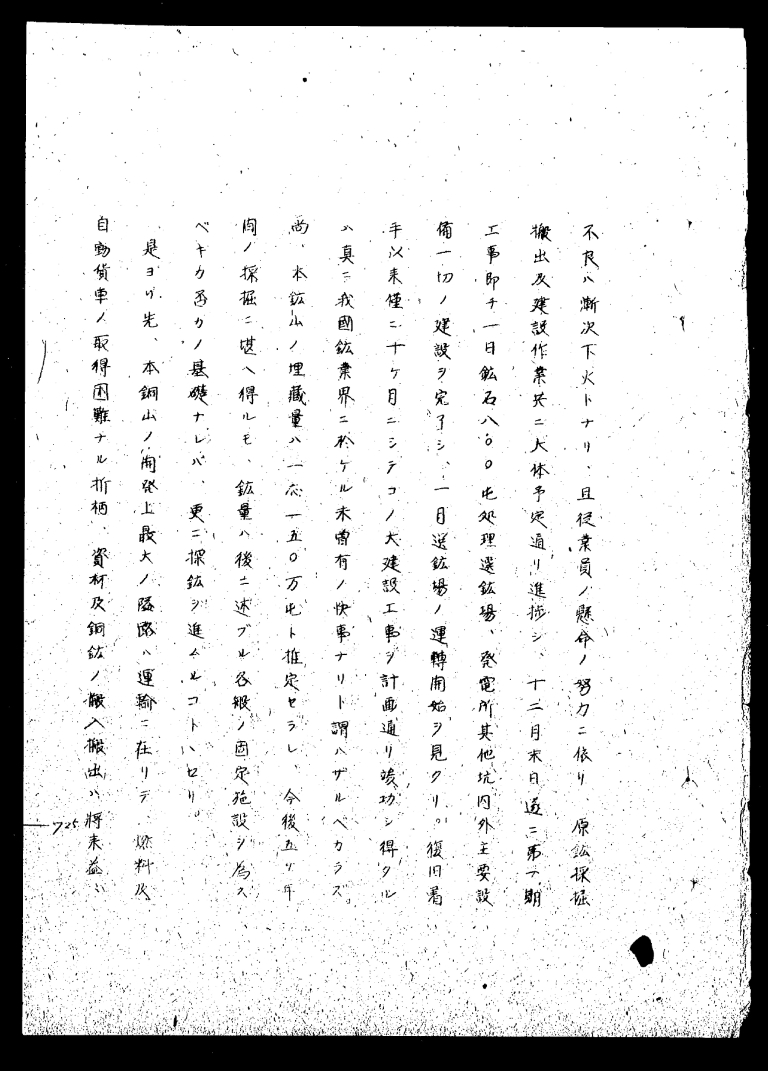 不良ハ漸次下火トナリ、且従業員ノ懸命ノ努力ニ依リ 原鉱採掘
搬出及建設作業共ニ大体予定通リ進捗シ、十二月末日 遂ニ第一期
工事即チ一日鉱石八〇〇屯処理選鉱場、発電所其他坑内外主要設
備一切ノ建設ヲ完了シ、一月選鉱場ノ運轉開始ヲ見タリ。復旧着
手以来僅ニ十ケ月ニシテコノ大建設工事ヲ計画通リ竣功シ得タル
ハ真ニ我國鉱業界ニ於ケル未曽有ノ快事ナリト謂ハザルベカラズ。
尚、本鉱山ノ埋蔵量ハ一六一五〇万屯ト推定セラレ、今後五ケ年
間ノ採掘ニ堪ヘ得ルモ、鉱量ハ後ニ述ブル各般ノ固定施設ヲ為ス
ベキカ否カノ基礎ナレバ、更ニ探鉱ヲ進ムルコトハセリ。
是ヨリ先、本銅山ノ開発上最大ノ隘路ハ運輸ニ在リテ、燃料及
自動貨車ノ取得困難ナル折柄、資材及銅鉱ノ搬入搬出ハ將来益々
725